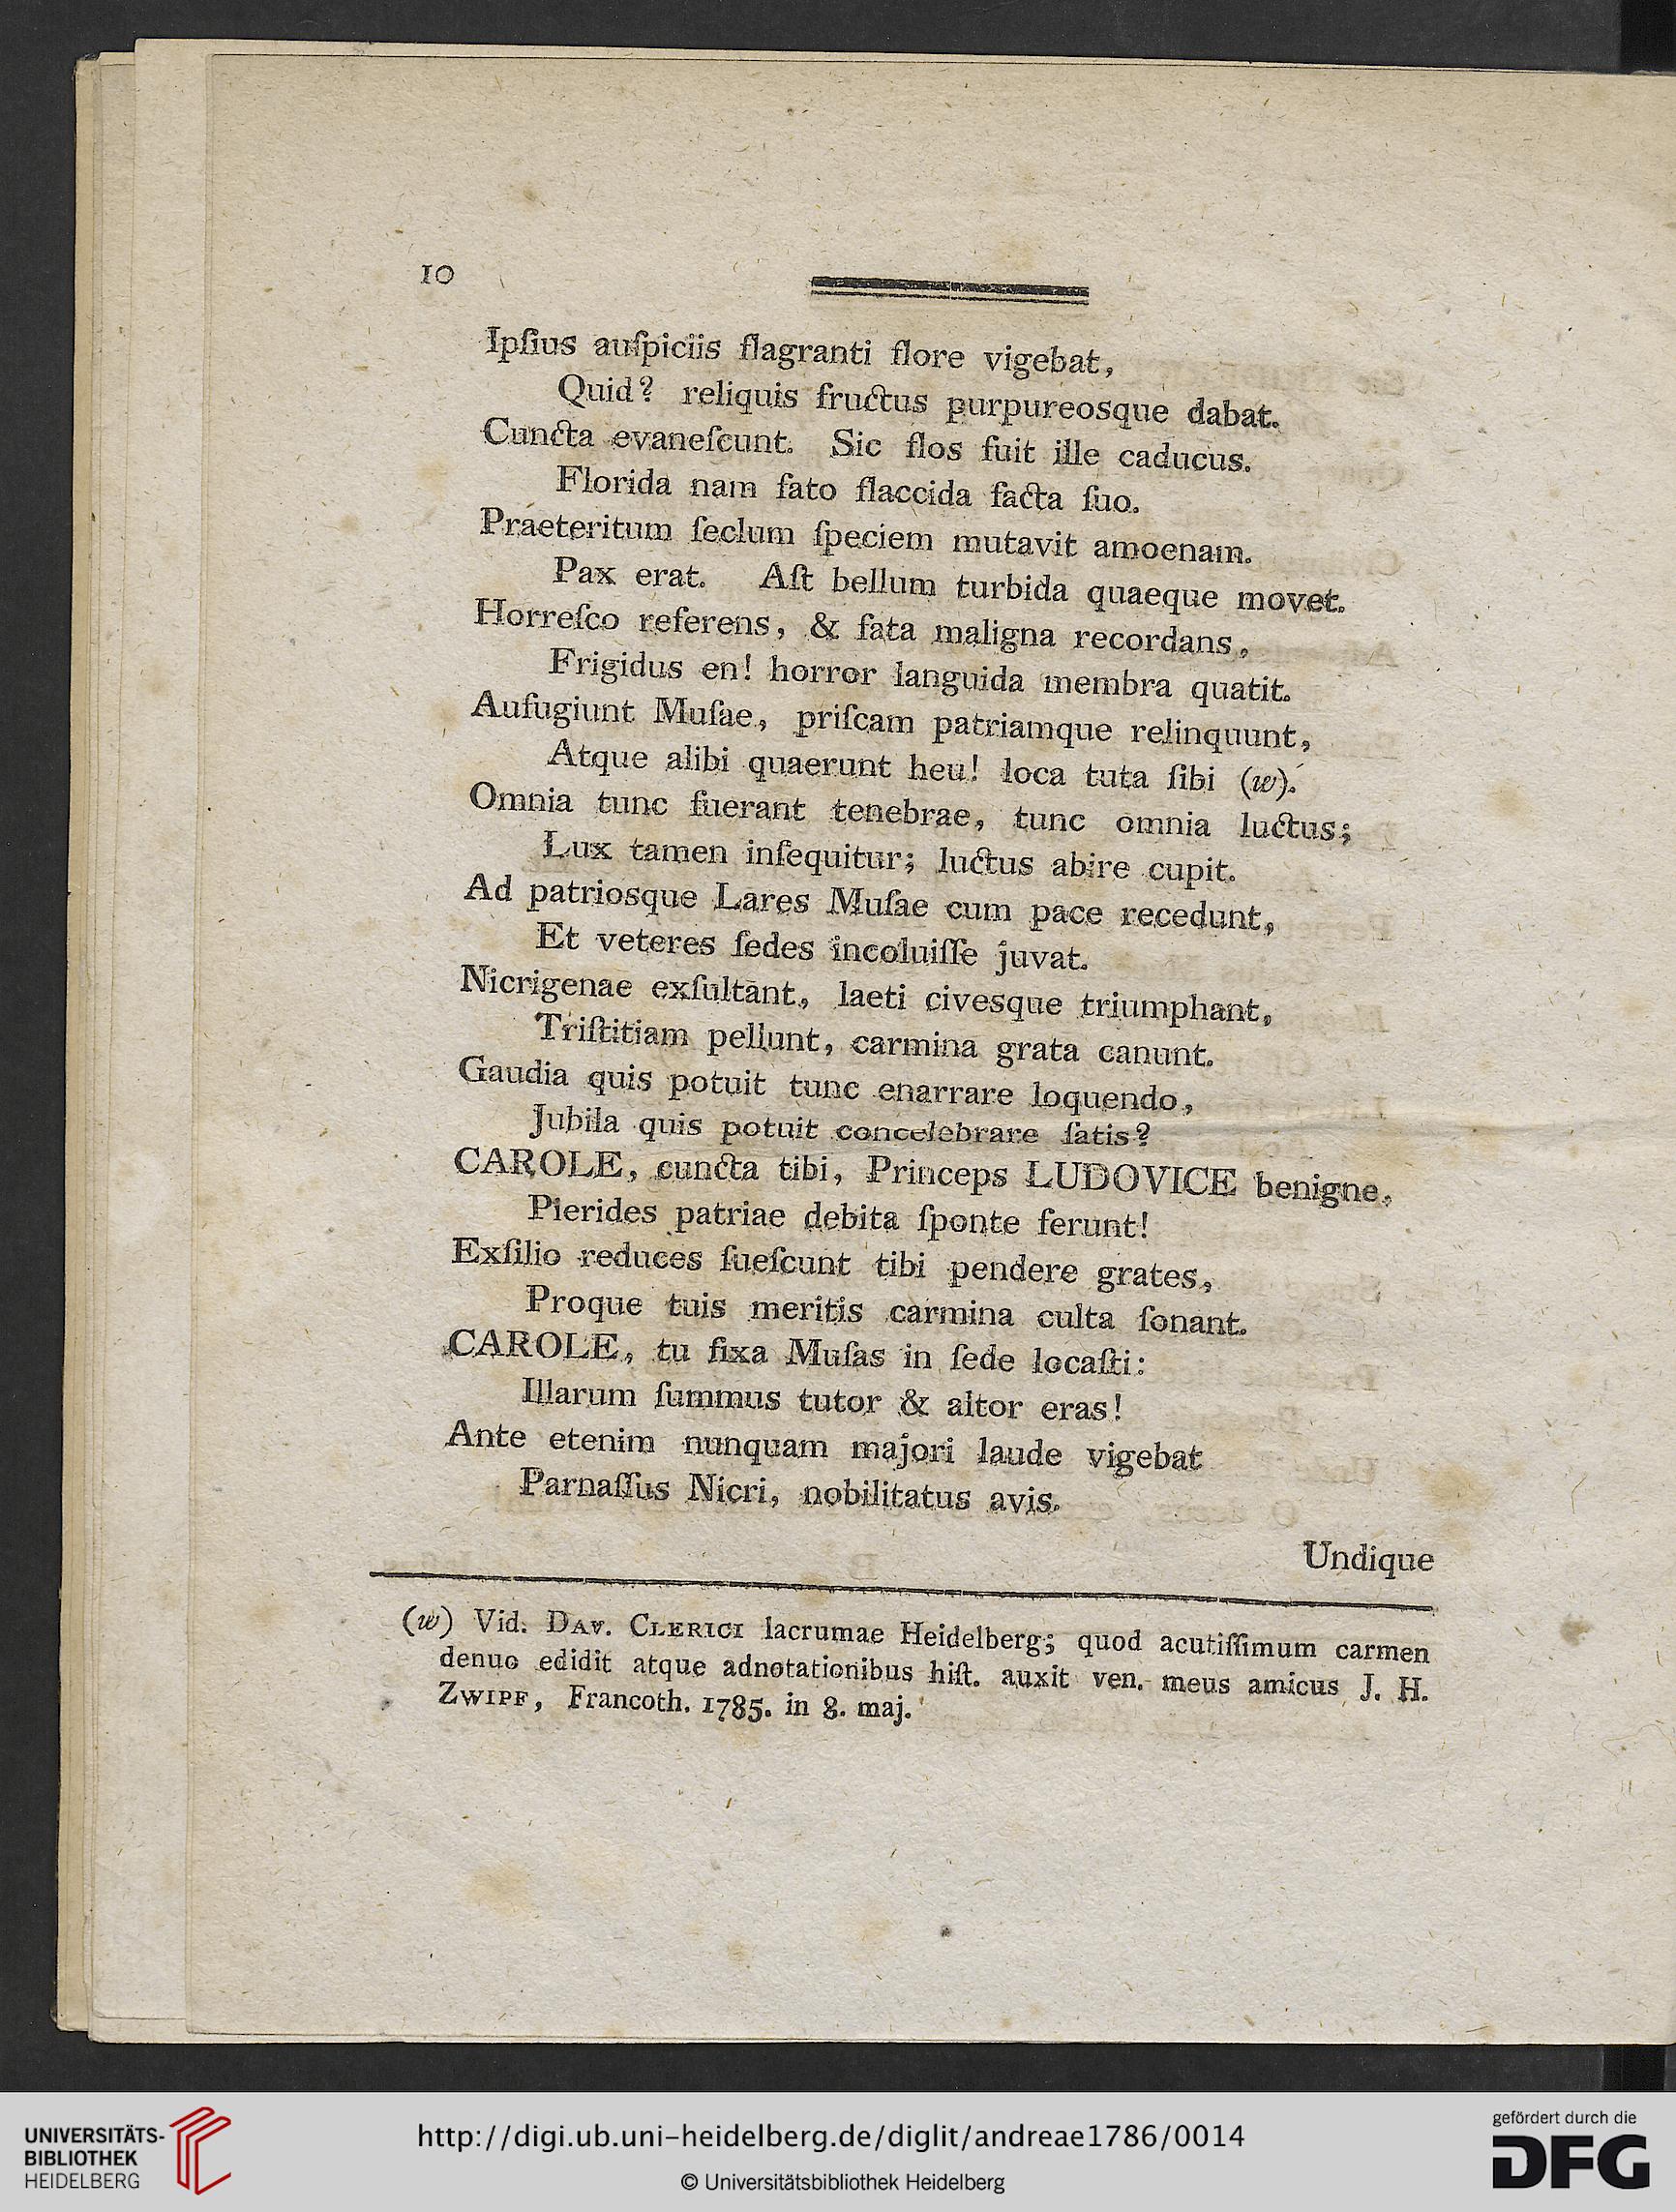 10
Ipſius auſpiciis flagranti flore vigebat,
Quid? reliquis fructus purpureosque dabat.
Cuncta evaneſcunt. Sic flos fuit ille caducus.
Florida nam fato flaccida facta ſuo.
Praeteritum ſeclum ſpeciem mutavit amoenam.
Pax erat. Aſt bellum turbida quaeque movet.
Horreſco referens, & fata maligna recordans,
Frigidus en! horror languida membra quatit.
Aufugiunt Muſae, priſcam patriamque relinquunt,
Atque alibi quaerunt heu! loca tuta ſibi (w).
Omnia tunc fuerant tenebrae, tunc omnia luctus;
Lux tamen inſequitur; luctus abire cupit.
Ad patriosque Lares Muſae cum pace recedunt,
Et veteres ſedes incoluiſſe juvat.
Nicrigenae exſultant, laeti civesque triumphant,
Triſtitiam pellunt, carmina grata canunt.
Gaudia quis potuit tunc enarrare loquendo,
Jubila quis potuit concelebrare ſatis?
CAROLE, cuncta tibi, Princeps LUDOVICE benigne,
Pierides patriae debita ſponte ferunt!
Exſilio reduces ſueſcunt tibi pendere grates,
Proque tuis meritis carmina culta ſonant.
CAROLE, tu fixa Muſas in ſede locaſti:
Illarum ſummus tutor & altor eras!
Ante etenim nunquam majori laude vigebat
Parnaſſus Nicri, nobilitatus avis.
Undique
(w) Vid. DAV. CLERICI lacrumae Heidelberg; quod acutiſſimum carmen
denuo edidit atque adnotationibus hiſt. auxit ven. meus amicus J. H.
ZWIPF, Francoth. 1785. in 8. maj.
UNIVERSITÄTS-
BIBLIOTHEK
HEIDELBERG
http://digi.ub.uni-heidelberg.de/diglit/andreae1786/0014
© Universitätsbibliothek Heidelberg
gefördert durch die
DFG